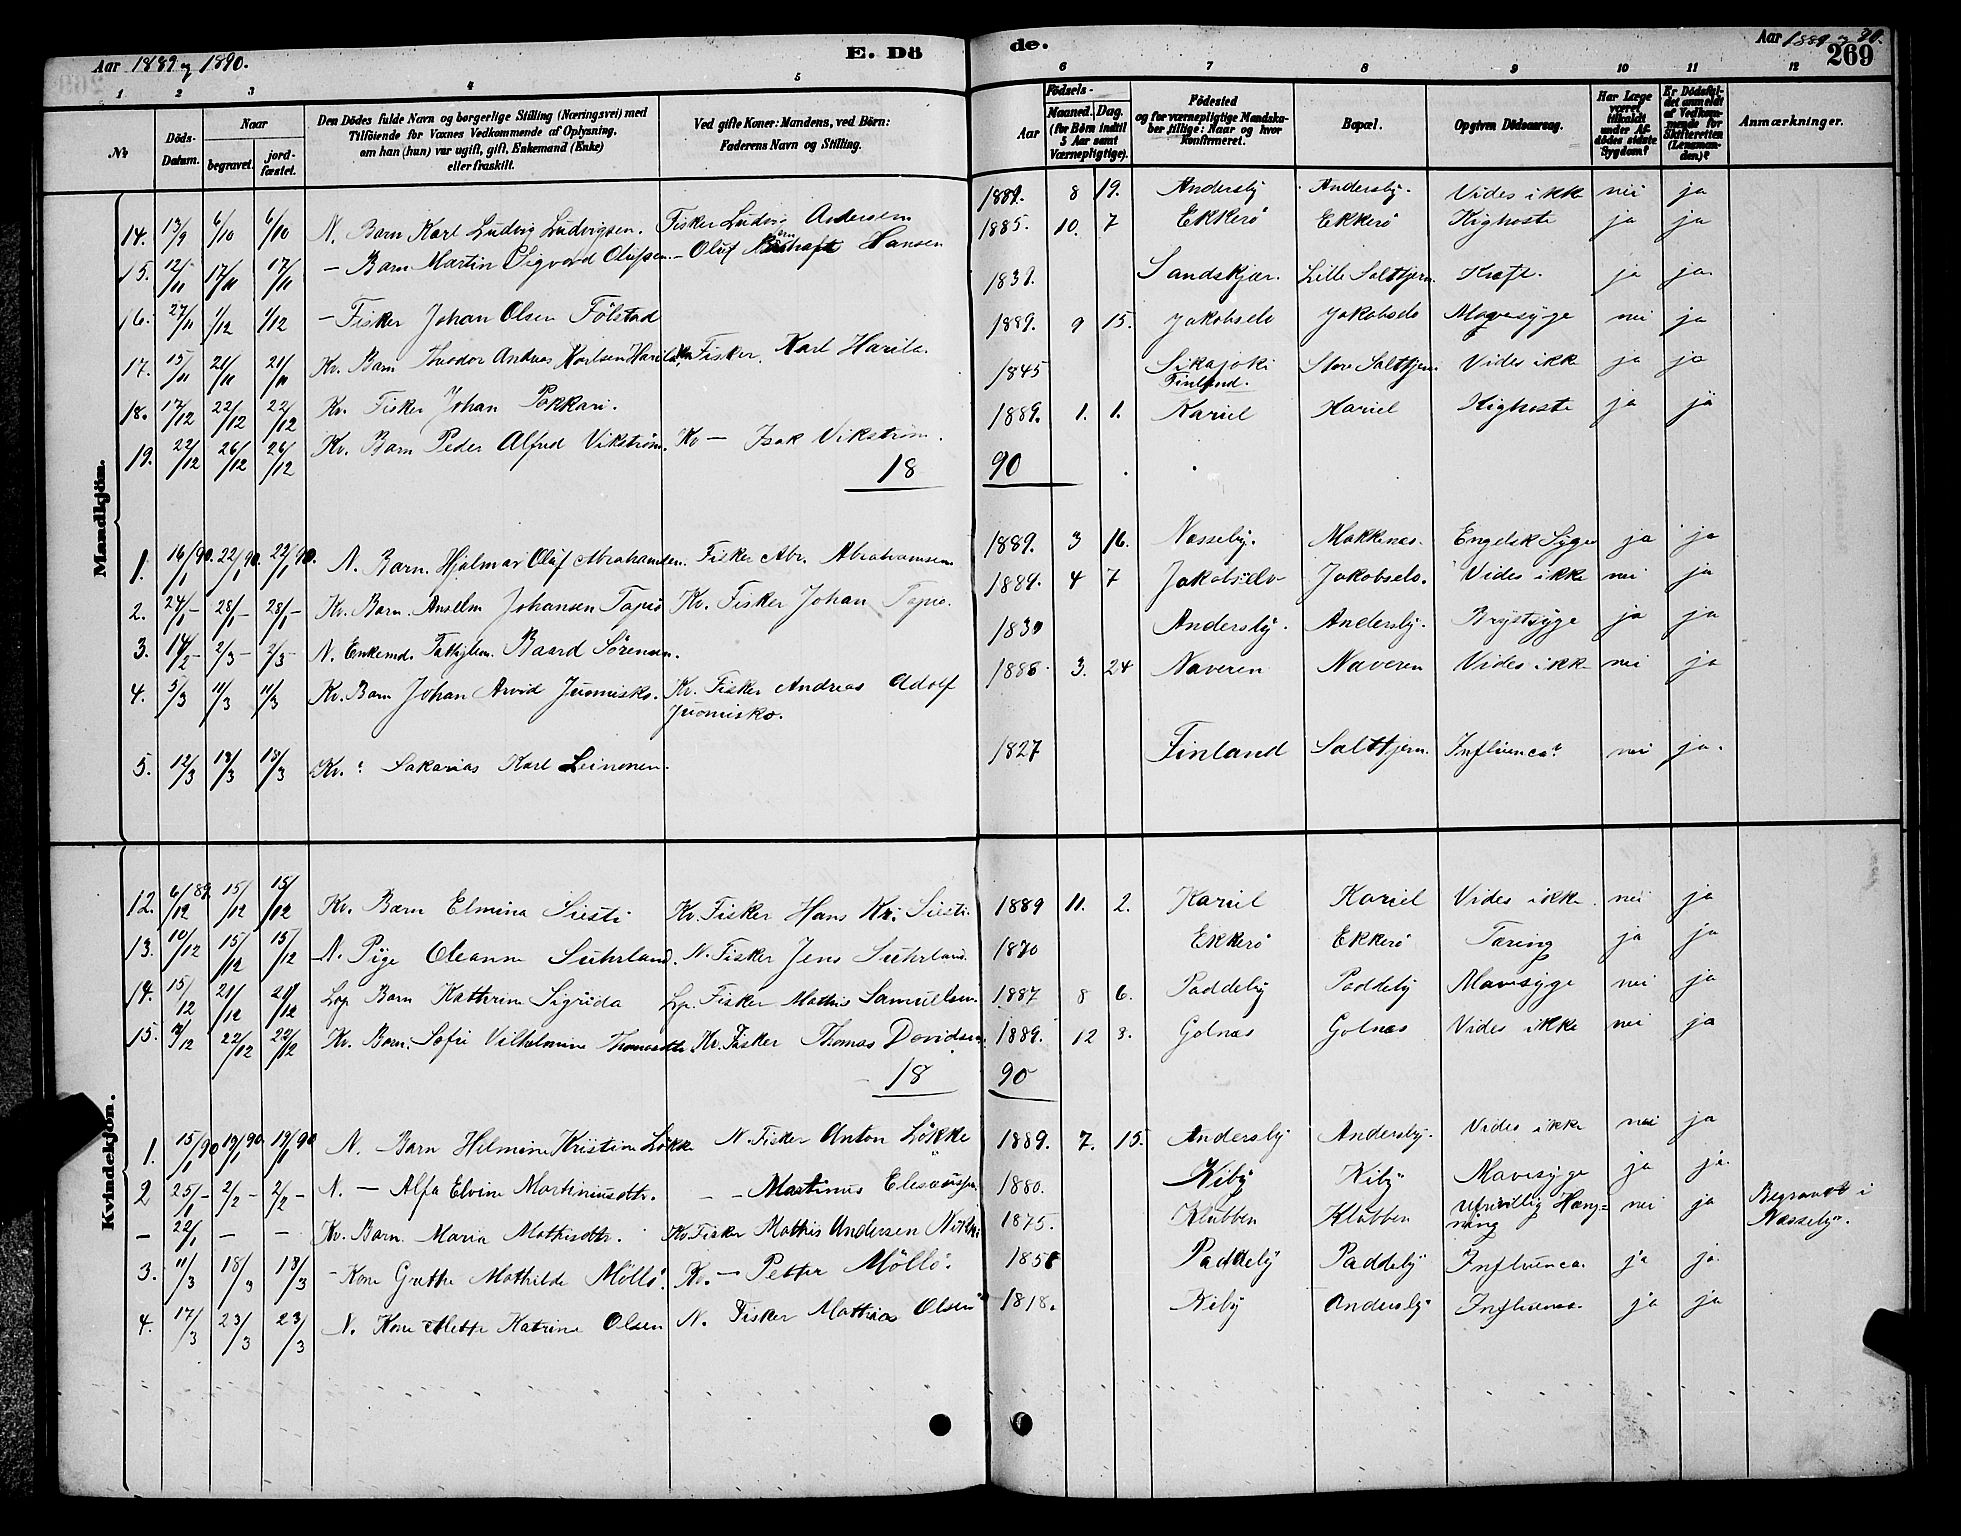 Aar 1889 og 1890.
E. Dö
de.
Aar 1889 og 90.
269
1 2 3 4 5 6 7 8 9 10 11 12
№
Döds-Datum.
Naar
begravet.
jord-fæstet.
Den Dödes fulde Navn og borgerlige Stilling (Næringsvei) med
Tilföiende for Voxnes Vedkommende af Oplysning,
om han (hun) var ugift, gift, Enkemand (Enke)
eller fraskilt.
Ved gifte Koner: Mandens, ved Börn:
Faderens Navn og Stilling.
Födsels-
Aar
Maaned. Dag.
(for Börn indtil
5 Aar samt
Værnepligtige).
Födested
og for værnepligtige Mandska-
ber tillige: Naar og hvor
konfirmeret.
Bopæl.
Opgiven Dödsaarsag.
Har Læge
været
tilkaldt
under Af-
dödes sidste
Sygdom?
Er Dödsfal-
det anmeldt
af Vedkom-
mende for
Skifteretten
(Lensman-
den)?
Anmærkninger.
Mandkjön.
14. 13/9 6/10 6/10 N. Barn Karl Ludvig Ludvigsen. Fisker Ludvig Andersen 1889. 8 19. Andersby Andersby. Vides ikke nei ja
15. 12/11 17/11 17/11 — Barn Martin Sigvard Olufsen. — Oluf Hansen 1885. 10. 7 Ekkerö Ekkerö Kighoste ja ja
16. 27/11 1/12 1/12 — Fisker Johan Olsen Fölstad 1831. Sandskjær. Lille Saltfjern. Kræft. ja ja.
17. 15/11 21/11 21/11 Kv. Barn Theodor Andreas Karlsen Harila Kv. Fisker Karl Harila. 1889. 9 15. Jakobselv Jakobselv Mavesyge nei ja
18. 17/12 22/12 22/12 Kv. Fisker Johan Pokkari. 1845 Sikajoki Finland. Store Saltfjern. Vides ikk ja ja
19. 22/12 26/12 26/12 Kv. Barn Peder Alfred Vikström. Kv — Isak Vikström. 1889. 1. 1. Kariel Kariel Kighoste ja ja
18 90
1. 16/1 90. 22/1 90. 22/1 90. N. Barn. Hjalmar Oluf Abrahamsen. Fisker Abr. Abrahamsen 1889. 3 16. Nesseby. Makkenes. Engelsk Syge ja ja
2. 24/1 — 28/1 — 28/1 — Kv. Barn. Anselm Johansen Tapio Kv. Fisker Johan Tapio. 1889. 4 7 Jakobselv Jakobselv. Vides ikke nei ja
3. 14/2 — 2/3 — 2/3 — N. Enkemd. Fattiglem. Baard Sörensen. 1830 Andersby. Andersby. Brystsyge ja ja
4. 5/3 11/3 11/3 Kv. Barn Johan Arvid Juomisko. Kv. Fisker Andreas Adolf Juomisko. 1886. 3. 24 Naveren Naveren Vides ikk nei ja
5. 12/3 18/3 18/3 Kv. Sakarias Karl Leinonen. 1827 Finland Saltfjern. Influenca? nei ja.
Kvindekjön.
12. 6/12 89. 15/12 15/12 Kv. Barn Elmina Siesti Kv. Fisker Hans Kr. Siesti. 1889 11. 2. Kariel Kariel Vides ikke. nei ja
13. 10/12 15/12 15/12 N. Pige Oleanne Suhrland. N. Fisker Jens Suhrland. 1870 Ekkerö Ekkerö Tæring ja ja
14. 15/12 21/12 21/12 Lp. Barn Kathrine Sigrida Lp. Fisker Mathis Samuelsen. 1887 8 6. Paddeby Paddeby Mavesyge nei ja
15. 22/12 22/12 Kv. Barn. Sofie Vilhelmine Thomasdtr. Kv. Fisker Thomas Davidsen. 1889. 12 3. Golnes Golnes Vides ikke nei ja
18 90
1. 15/1 90 19/1 90 19/1 90 N. Barn Helmine Kristine Lökke N. Fisker Anton Lökke 1889. 7. 15. Andersby Andersby. Vides ikke nei ja
2 25/1 — 2/2 — 2/2 — N. — Alfa Elvine Martiniusdtr. — — Martinus 1880. Kiby Kiby Mavesyge ja ja.
— 22/1 — — Kv. Barn. Maria Mathisdtr. Kv. Fisker Mathis Andersen 1875. Klubben Klubben Ufrivillig Hængning nei ja Begravet i Nesseby.
3. 11/3 18/3 18/3 — Kone Grethe Mathilde Möllö. Kv. — Petter Möllö. Paddeby Paddeby Influenca. ja ja.
4. 17/3 23/3 23/3 N. Kone Mette Katrine Olsen N. Fisker Mathias Olsen 1818. Kiby Andersby Influenca. ja ja